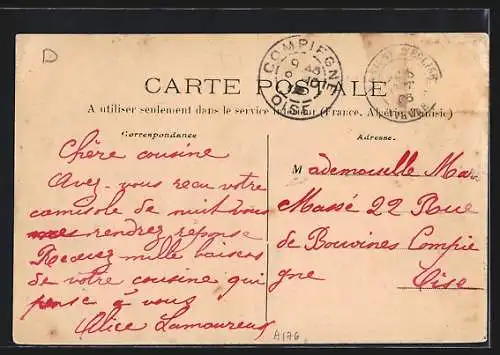 D
COMPIEGNE
OISE
CARTE POSTALE
A utiliser seulement dans le service intérieur (France, Algérie, Tunisie)
Correspondance
Chère cousine
Avez-vous reçu votre
camisole de nuit vous
rendrez reponse
Recevez mille baisers
de votre cousine qui
pense à vous
Alice Lamoureux
Adresse.
Mademoiselle
Massé 22 Rue
de Bouvines Compie
gne
Oise
A176